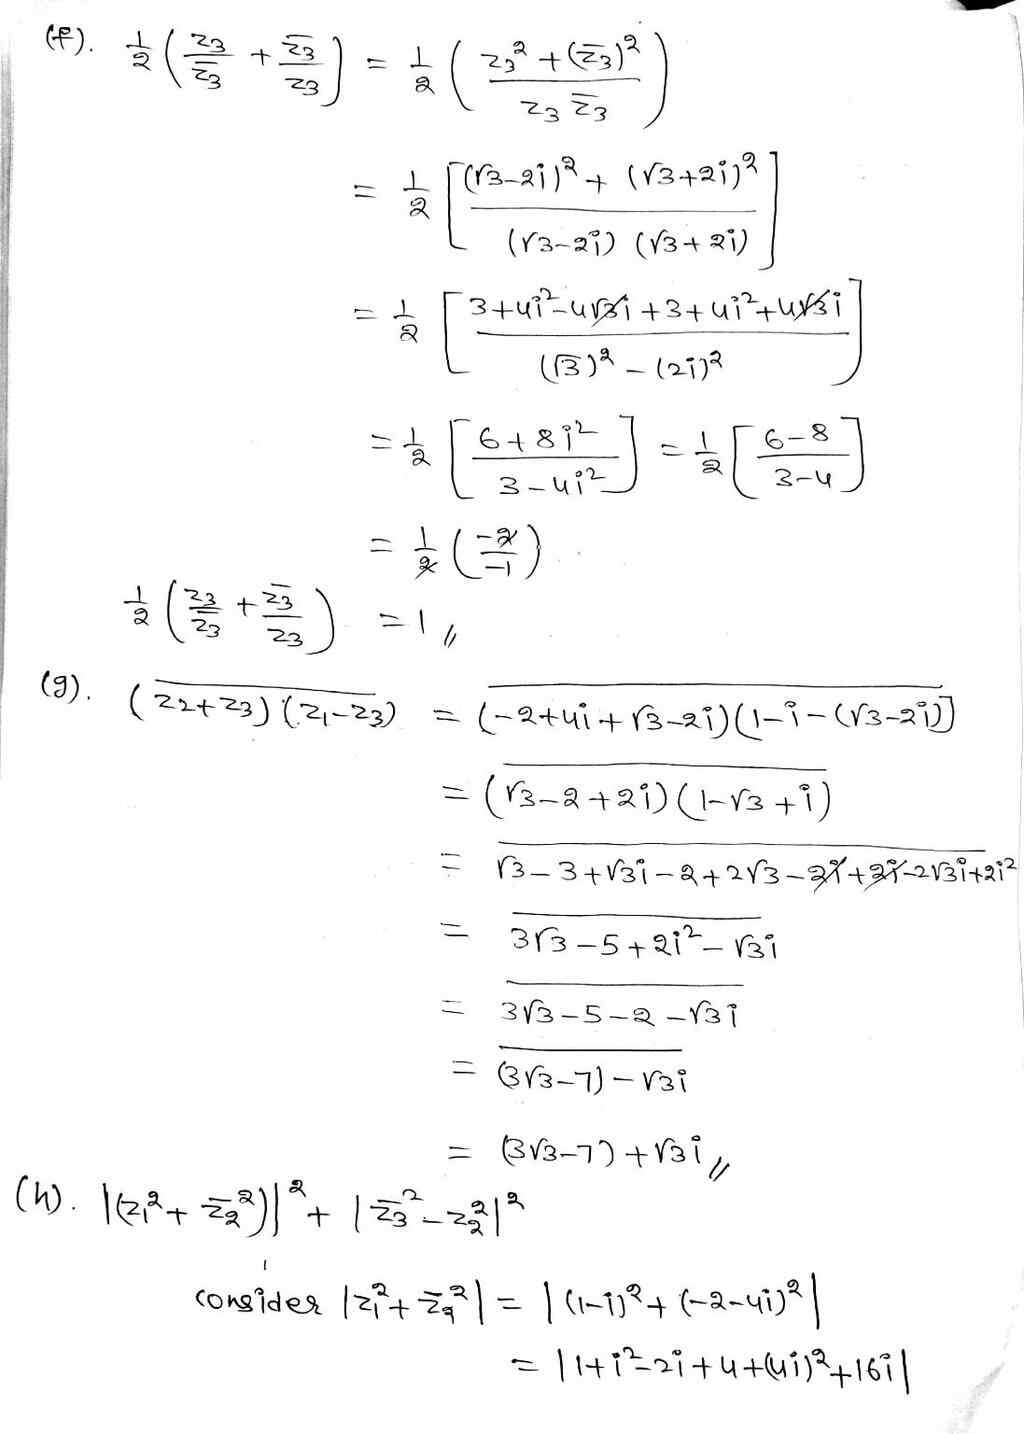 (f). 1/2 (z₃/z̅₃ + z̅₃/z₃) = 1/2 ((z₃² + (z̅₃)²)/(z₃ z̅₃))
= 1/2 [((√3-2i)² + (√3+2i)²)/((√3-2i) (√3+2i))]
= 1/2 [(3+4i²-4√3i+3+4i²+4√3i)/((√3)² - (2i)²)]
= 1/2 [(6+8i²)/(3-4i²)] = 1/2 [(6-8)/(3-4)]
= 1/2 (-2/-1)
1/2 (z₃/z̅₃ + z̅₃/z₃) = 1 //
(g). \overline{(z₂+z₃)(z₁-z₃)} = \overline{(-2+4i+√3-2i)(1-i-(√3-2i)]}
= \overline{(√3-2+2i)(1-√3+i)}
= \overline{√3-3+√3i-2+2√3-2i+2i-2√3i+2i²}
= \overline{3√3-5+2i²-√3i}
= \overline{3√3-5-2-√3i}
= \overline{(3√3-7)-√3i}
= (3√3-7)+√3i //
(h). |(z₁²+z̅₂²)|² + |z̅₃²-z₂²|²
consider |z₁²+z̅₂²| = |(1-i)²+(-2-4i)²|
= |1+i²-2i+4+(4i)²+16i|